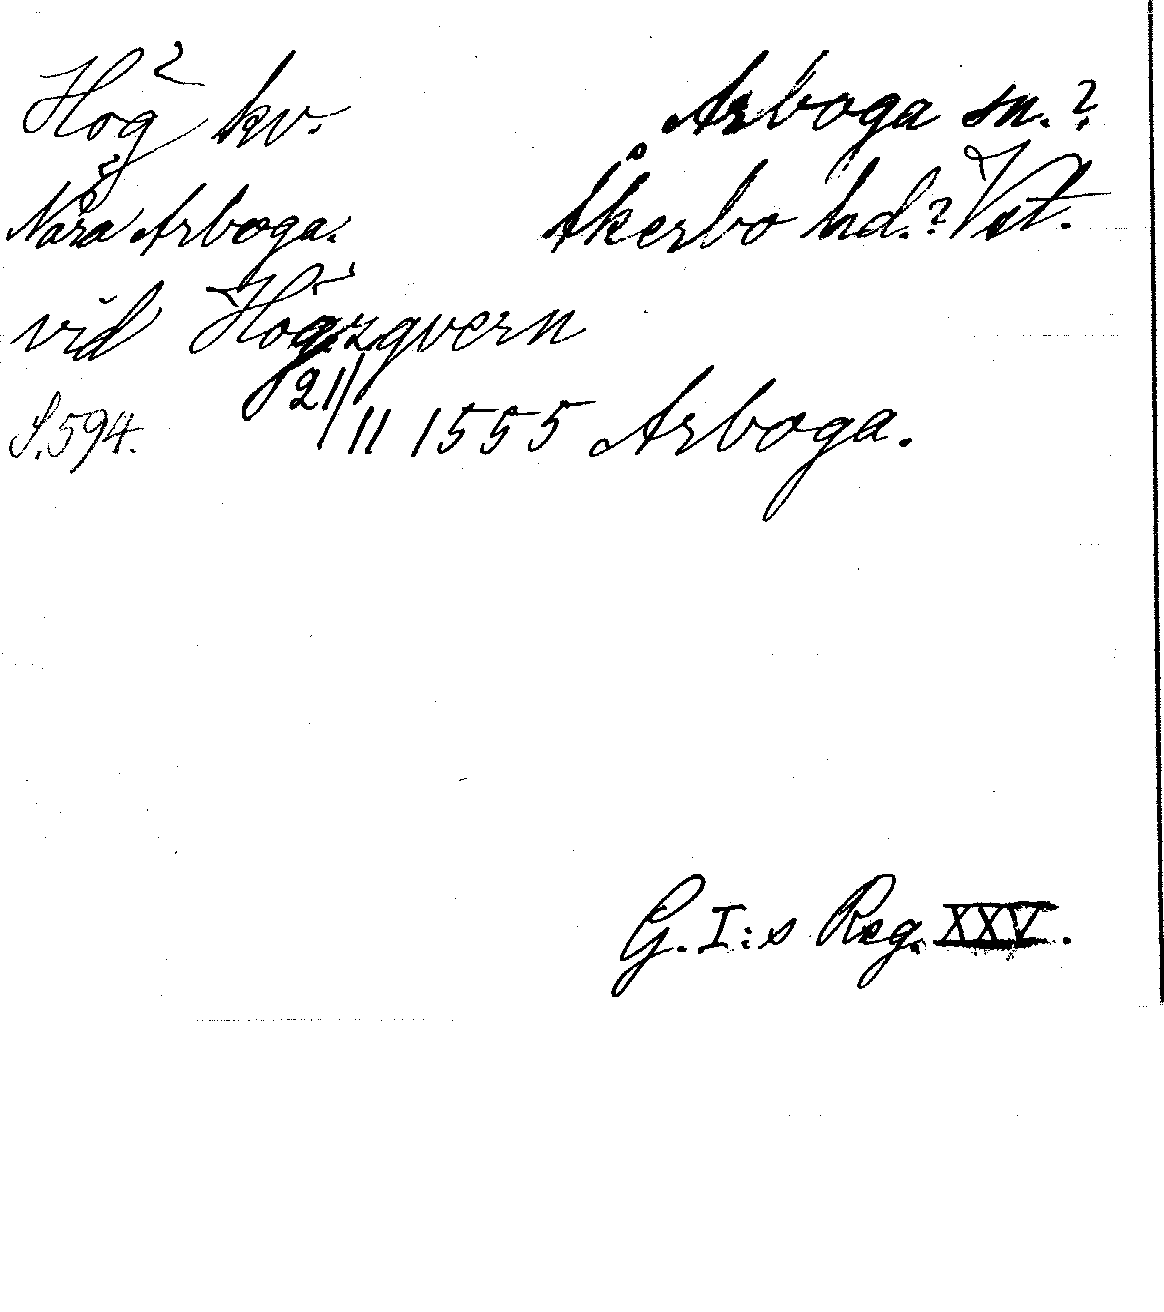 Hög kv. Arboga sn.?
Nära Arboga. Åkerbo hd.? Vst.
vid Högzgvern
S. 594. 21/11 1555 Arboga.
G. I:s Reg. XXV.